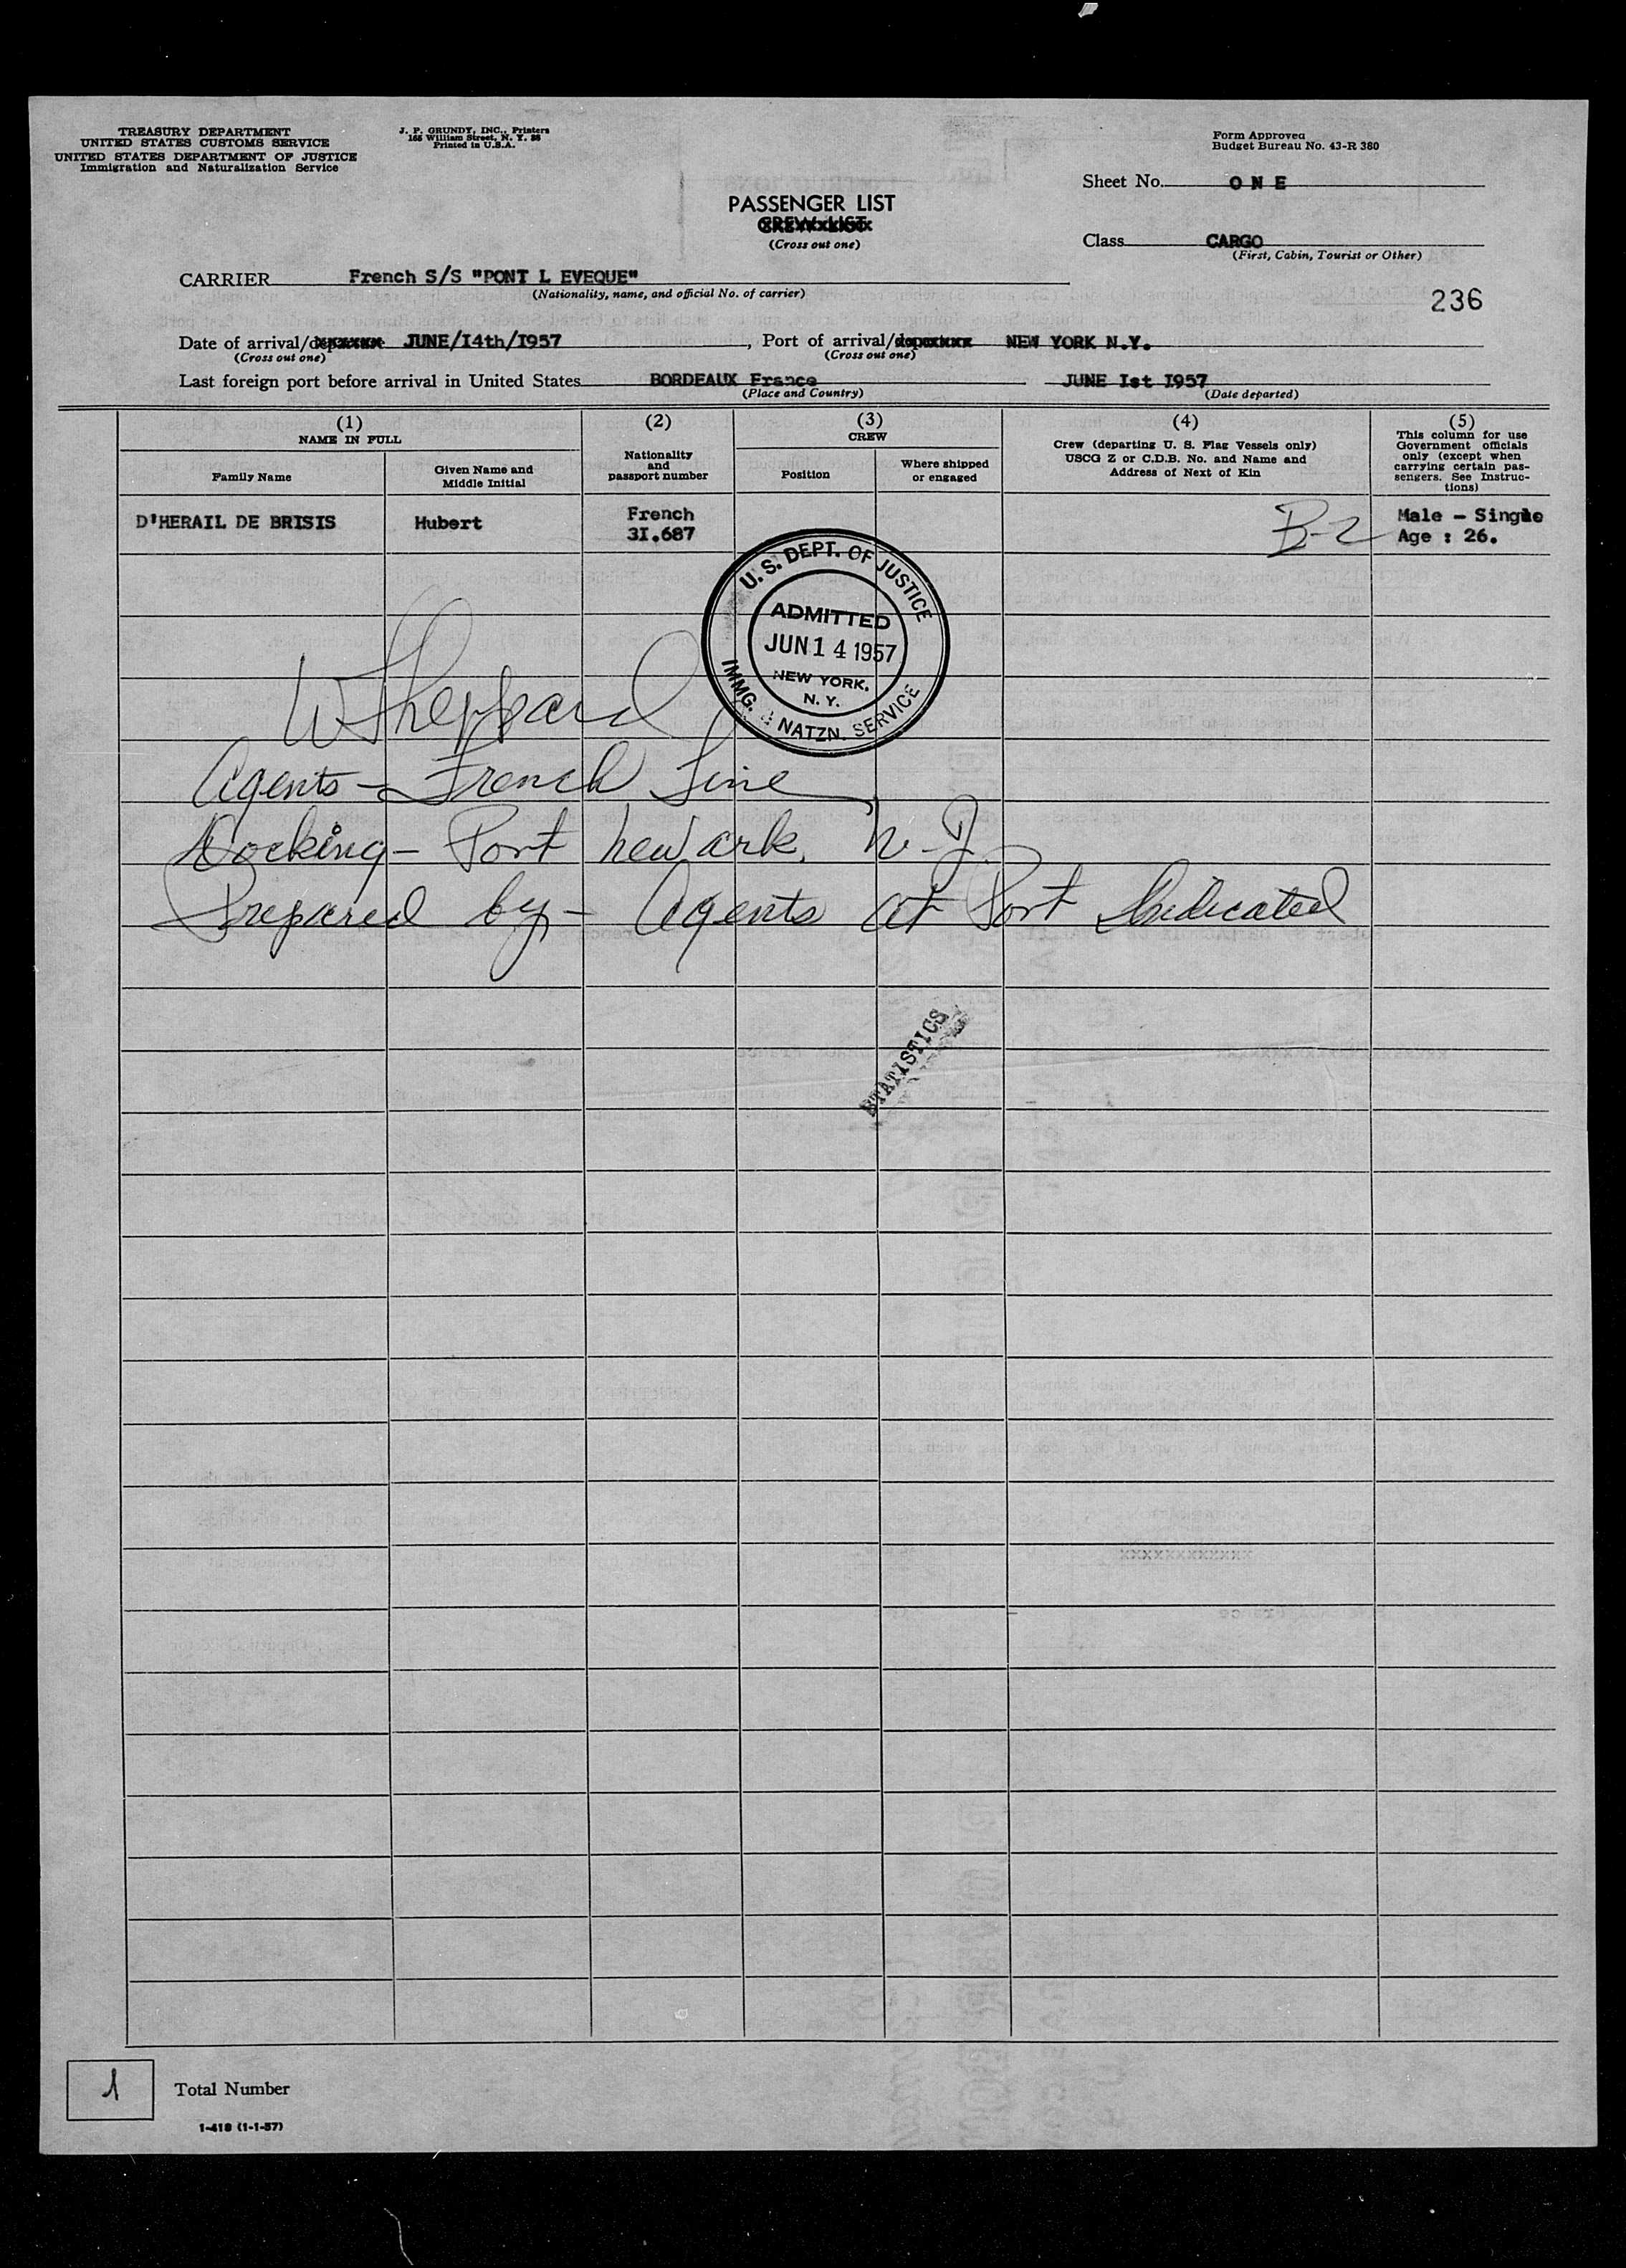 TREASURY DEPARTMENT
UNITED STATES CUSTOMS SERVICE
UNITED STATES DEPARTMENT OF JUSTICE
Immigration and Naturalization Service
J. P. GRUNDY, INC., Printers
Printed in U.S.A.
Form Approved
Budget Bureau No. 43-R 380
Sheet No. O N E
PASSENGER LIST
CREW LIST
(Cross out one)
Class CARGO
(First, Cabin, Tourist or Other)
CARRIER French S/S "PONT L EVEQUE"
(Nationality, name, and official No. of carrier)
236
Date of arrival/ JUNE/I4th/I957, Port of arrival/ NEW YORK N.Y.
(Cross out one) (Cross out one)
Last foreign port before arrival in United States BORDEAUX France JUNE Ist I957
(Place and Country) (Date departed)
(1)
NAME IN FULL
Family Name
Given Name and
Middle Initial
(2)
Nationality
and
passport number
(3)
CREW
Position
Where shipped
or engaged
(4)
Crew (departing U. S. Flag Vessels only)
USCG Z or C.D.B. No. and Name and
Address of Next of Kin
(5)
This column for use
Government officials
only (except when
carrying certain pas-
sengers. See Instruc-
tions)
D'HERAIL DE BRISIS Hubert French
3I.687
B-2
Male - Single
Age : 26.
U. S. DEPT. OF JUSTICE
ADMITTED
JUN 14 1957
NEW YORK.
N. Y.
IMMG. & NATZN. SERVICE
W Sheppard
Agents - French Line
Docking - Port Newark, N.J.
Prepared by - Agents at Port Indicated
STATISTICS
1 Total Number
I-418 (1-1-57)